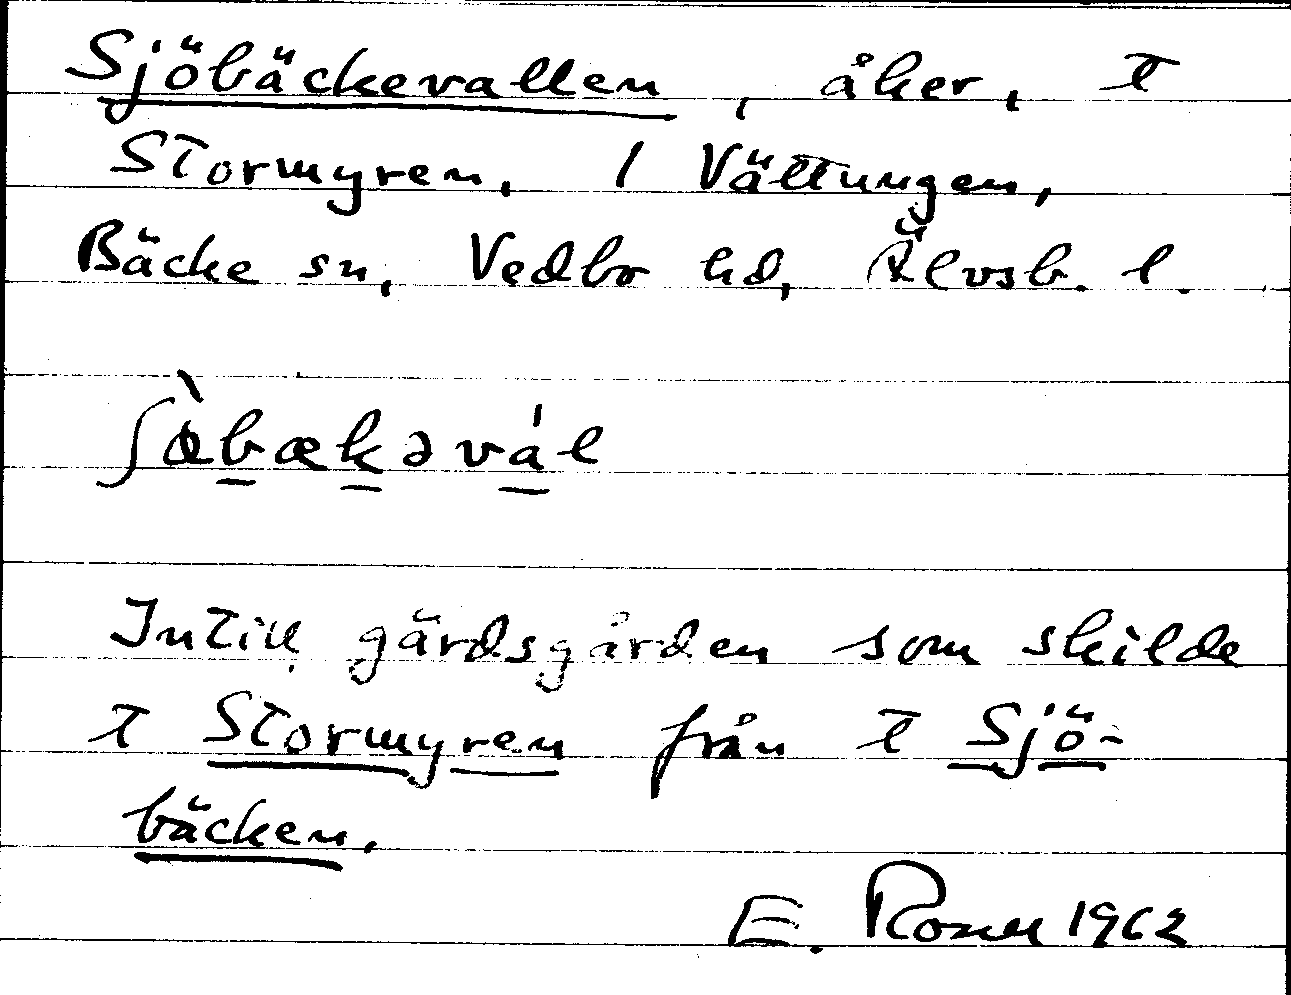 Sjöbäckevallen, åker, t
Stormyren. / Vättungen,
Bäcke sn, Vedbo hd, Älvsb. l.
ʃøbækəval
Intill gärdsgården som skilde
t Stormyren från t Sjö-
bäcken.
E. Rosell 1962